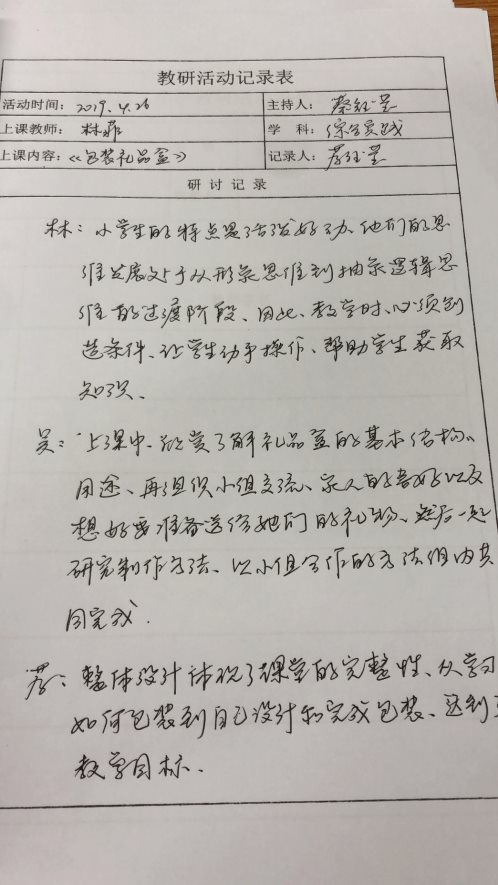 教研活动记录表
活动时间：2019.4.26 主持人：蔡钰莹
上课教师：林菲 学 科：综合实践
上课内容：《包装礼品盒》 记录人：蔡钰莹
研讨记录
林：小学生的特点是活泼好动、他们的思
维发展处于从形象思维到抽象逻辑思
维的过渡阶段、因此、教学时、必须创
造条件、让学生动手操作、帮助学生获取
知识、
吴：上课中、欣赏了解礼品盒的基本结构、
用途、再组织小组交流、家人的喜好以及
想好要准备送给她们的礼物、然后一起
研究制作方法、以小组合作的方法组内共
同完成.
蔡：整体设计体现了课堂的完整性、从学习
如何包装到自己设计和完成包装、达到
教学目标.